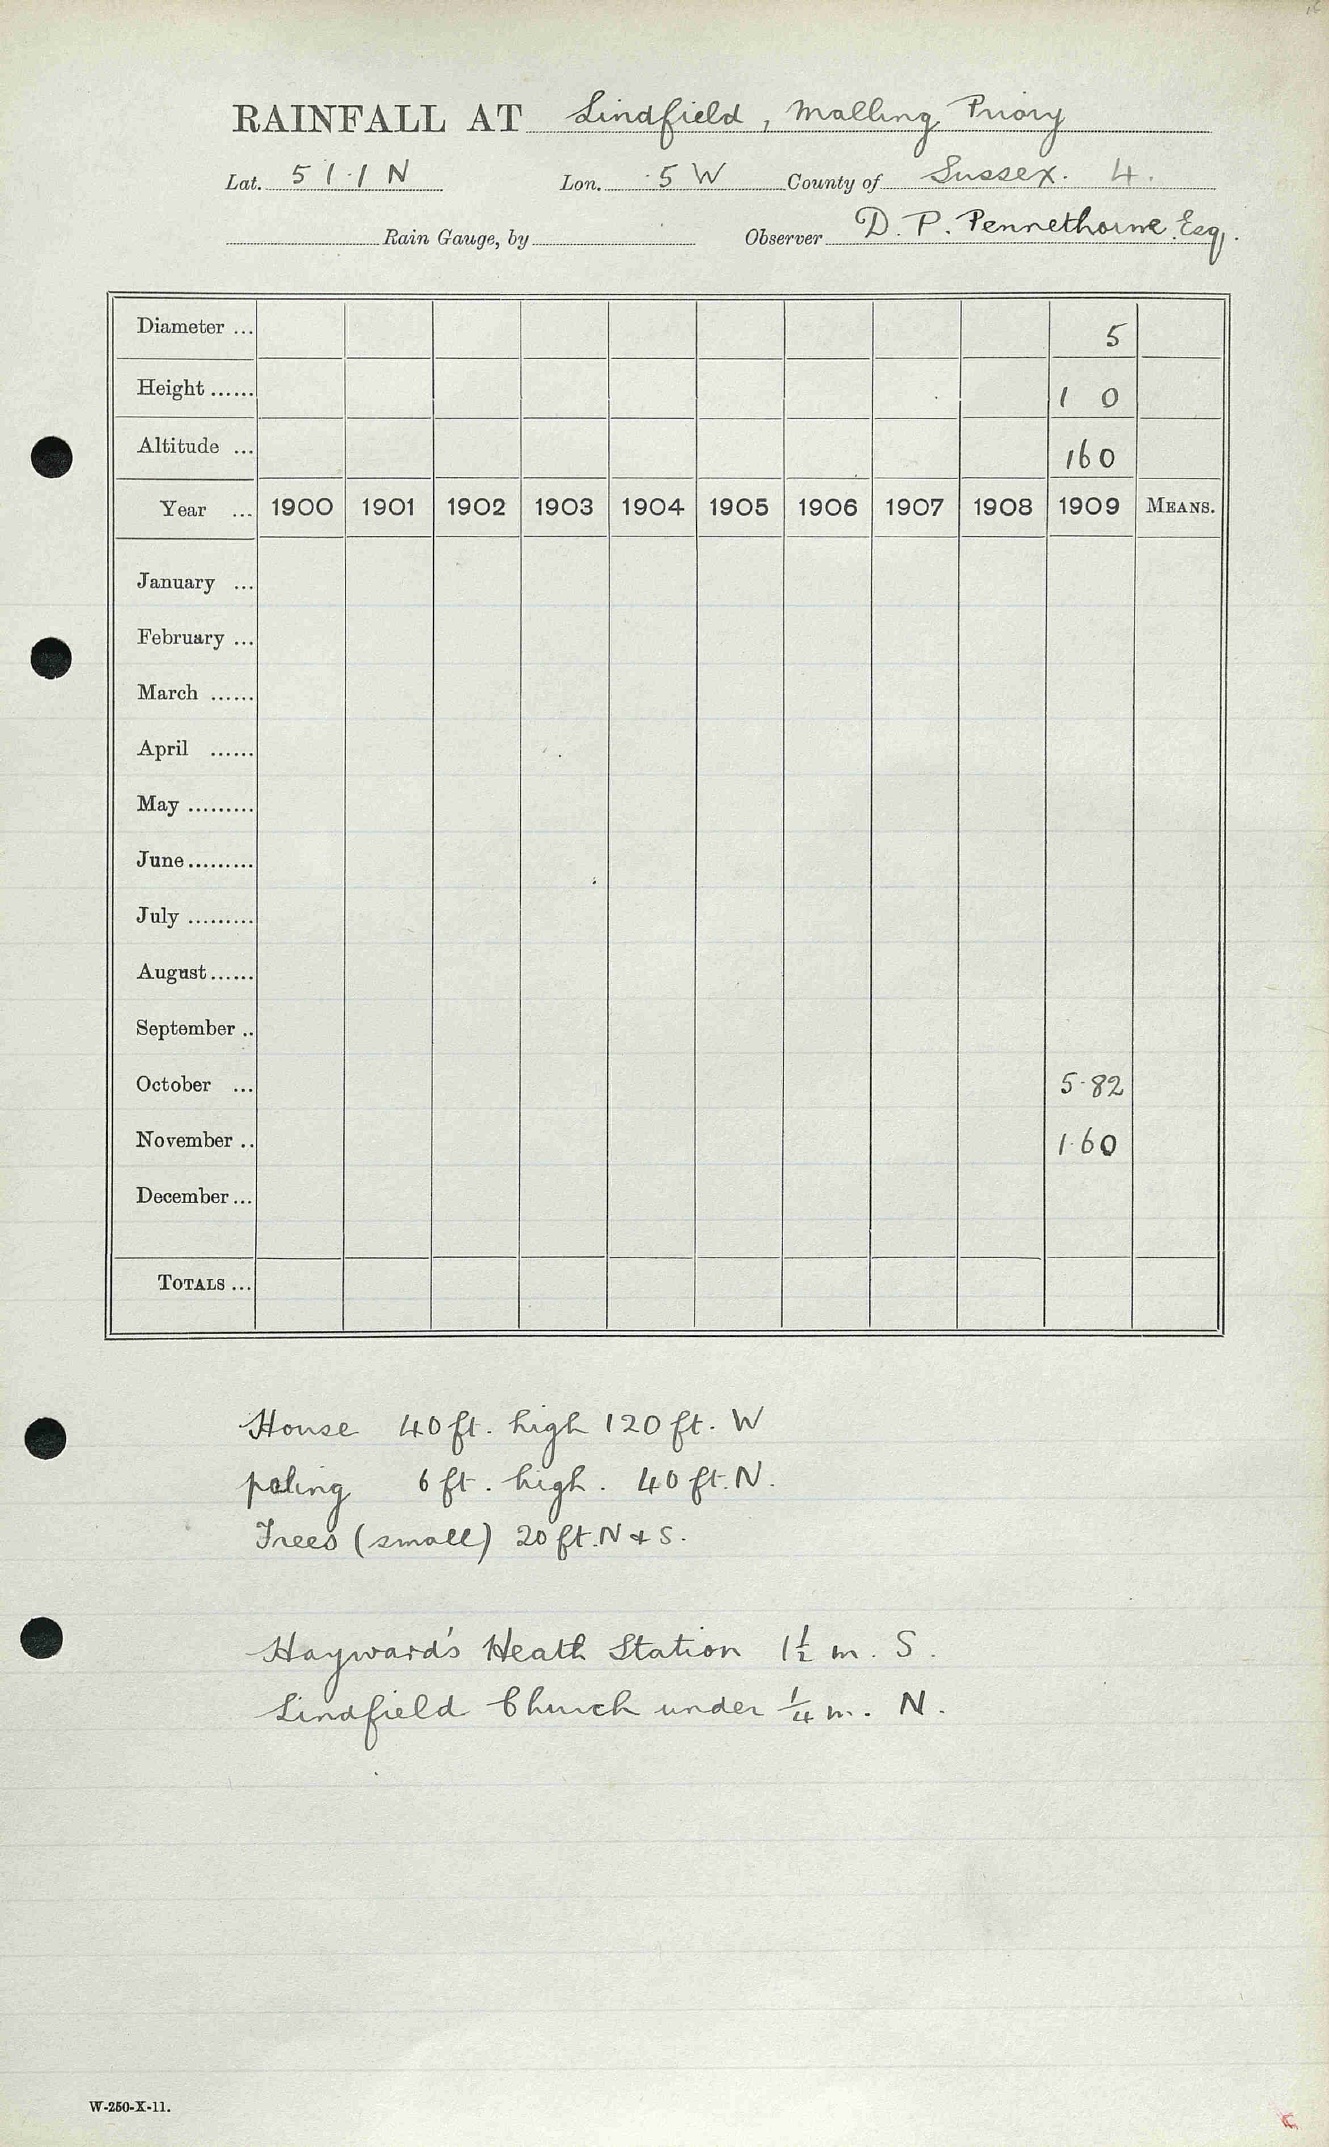 RAINFALL AT Lindfield, Malling Priory
Lat. 51.1 N Lon. .5 W County of Sussex. 4.
Rain Gauge, by Observer D. P. Pennethorne Esq.
Diameter ... 5
Height ...... 1 0
Altitude ... 160
Year ... 1900 1901 1902 1903 1904 1905 1906 1907 1908 1909 MEANS.
January ...
February ...
March ......
April ......
May .........
June .........
July .........
August ......
September ..
October ... 5.82
November .. 1.60
December ...
TOTALS ...
House 40 ft. high 120 ft. W
paling 6 ft. high. 40 ft. N.
Trees (small) 20 ft. N & S.
Hayward's Heath Station 1½ m. S.
Lindfield Church under ¼ m. N.
W-250-X-11.